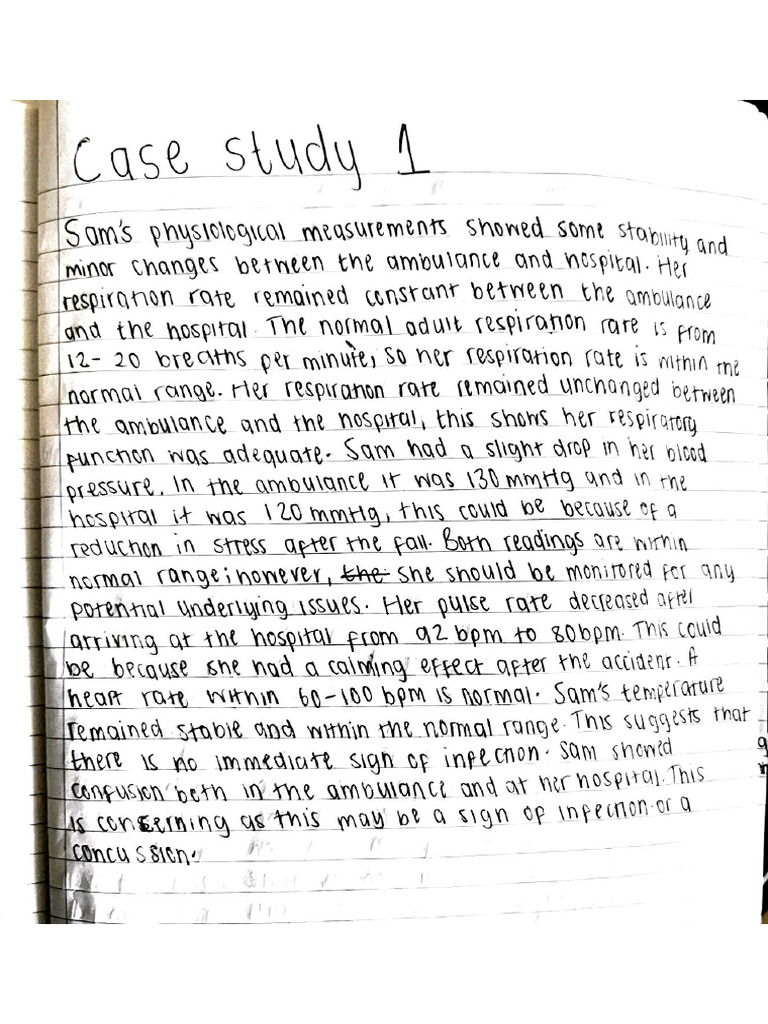 Case study 1
Sam's physiological measurements showed some stability and
minor changes between the ambulance and hospital. Her
respiration rate remained constant between the ambulance
and the hospital. The normal adult respiration rate is from
12-20 breaths per minute, so her respiration rate is within the
normal range. Her respiration rate remained unchanged between
the ambulance and the hospital, this shows her respiratory
function was adequate. Sam had a slight drop in her blood
pressure. In the ambulance it was 130 mmHg and in the
hospital it was 120 mmHg, this could be because of a
reduction in stress after the fall. Both readings are within
normal range; however, the she should be monitored for any
potential underlying issues. Her pulse rate decreased after
arriving at the hospital from 92 bpm to 80bpm. This could
be because she had a calming effect after the accident. A
heart rate within 60-100 bpm is normal. Sam's temperature
remained stable and within the normal range. This suggests that
there is no immediate sign of infection. Sam showed
confusion both in the ambulance and at her hospital. This
is concerning as this may be a sign of infection or a
concussion.